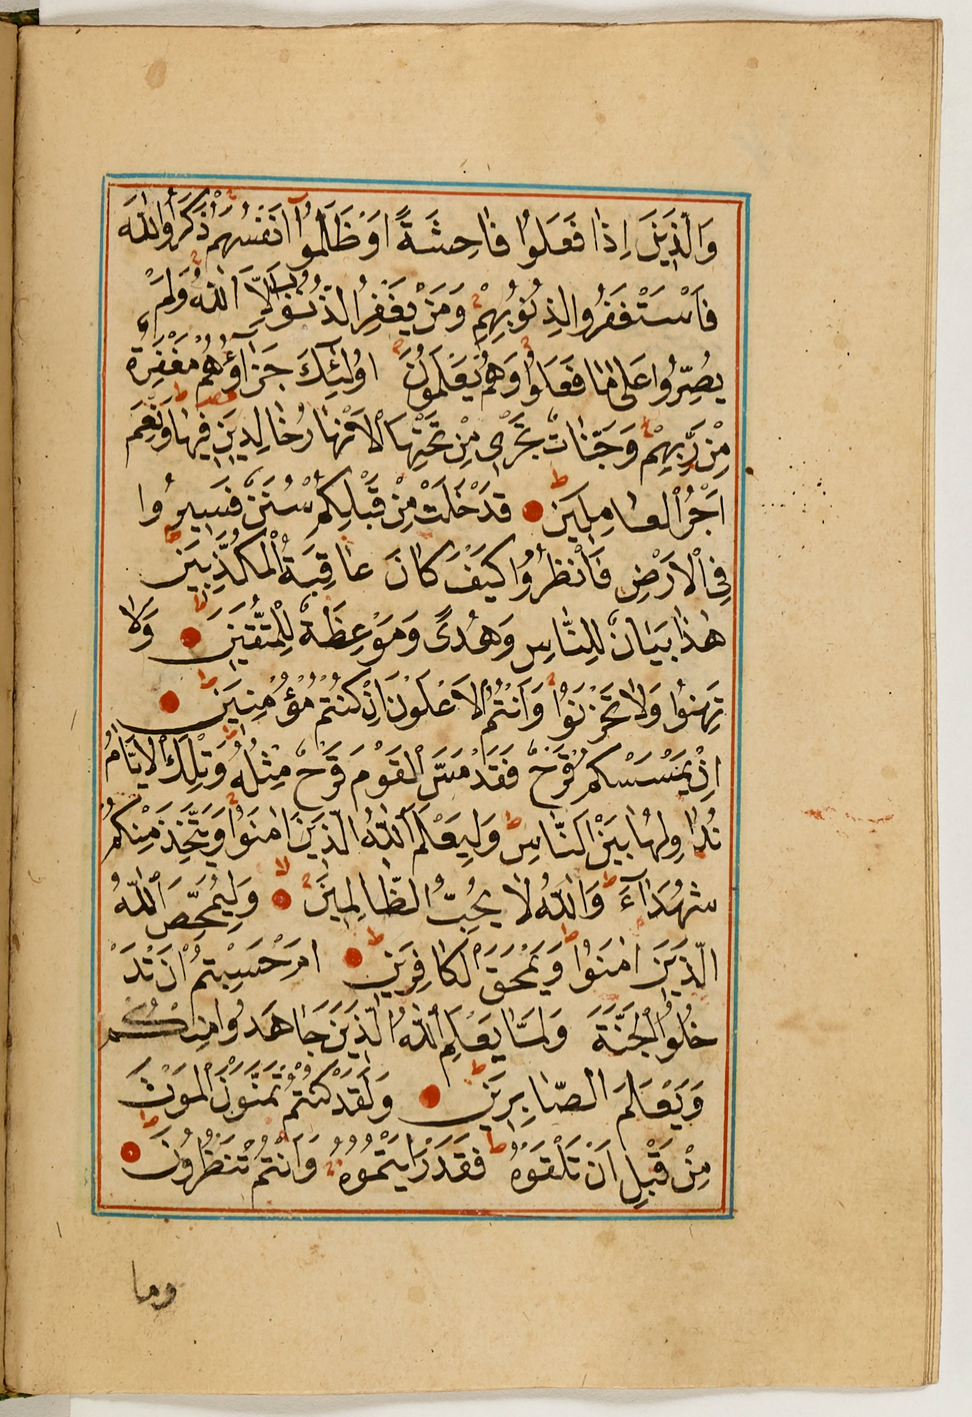 وَالَّذِينَ اِذَا فَعَلُوا فَاحِشَةً اَوْ ظَلَمُوا اَنْفُسَهُمْ ذَكَرُوا اللّٰهَ
فَاسْتَغْفَرُوا لِذُنُوبِهِمْ وَمَنْ يَغْفِرُ الذُّنُوبَ اِلَّا اللّٰهُ وَلَمْ
يُصِرُّوا عَلٰى مَا فَعَلُوا وَهُمْ يَعْلَمُونَ اُولٰئِكَ جَزَاۤؤُهُمْ مَغْفِرَةٌ
مِنْ رَبِّهِمْ وَجَنَّاتٌ تَجْرِى مِنْ تَحْتِهَا الْاَنْهَارُ خَالِدِينَ فِيهَا وَنِعْمَ
اَجْرُ الْعَامِلِينَ قَدْ خَلَتْ مِنْ قَبْلِكُمْ سُنَنٌ فَسِيرُوا
فِى الْاَرْضِ فَانْظُرُوا كَيْفَ كَانَ عَاقِبَةُ الْمُكَذِّبِينَ
هٰذَا بَيَانٌ لِلنَّاسِ وَهُدًى وَمَوْعِظَةٌ لِلْمُتَّقِينَ وَلَا
تَهِنُوا وَلَا تَحْزَنُوا وَاَنْتُمُ الْاَعْلَوْنَ اِنْ كُنْتُمْ مُؤْمِنِينَ
اِنْ يَمْسَسْكُمْ قَرْحٌ فَقَدْ مَسَّ الْقَوْمَ قَرْحٌ مِثْلُهُ وَتِلْكَ الْاَيَّامُ
نُدَاوِلُهَا بَيْنَ النَّاسِ وَلِيَعْلَمَ اللّٰهُ الَّذِينَ اٰمَنُوا وَيَتَّخِذَ مِنْكُمْ
شُهَدَاۤءَ وَاللّٰهُ لَا يُحِبُّ الظَّالِمِينَ وَلِيُمَحِّصَ اللّٰهُ
الَّذِينَ اٰمَنُوا وَيَمْحَقَ الْكَافِرِينَ اَمْ حَسِبْتُمْ اَنْ تَدْ
خُلُوا الْجَنَّةَ وَلَمَّا يَعْلَمِ اللّٰهُ الَّذِينَ جَاهَدُوا مِنْكُمْ
وَيَعْلَمَ الصَّابِرِينَ وَلَقَدْ كُنْتُمْ تَمَنَّوْنَ الْمَوْتَ
مِنْ قَبْلِ اَنْ تَلْقَوْهُ فَقَدْ رَاَيْتُمُوهُ وَاَنْتُمْ تَنْظُرُونَ
وما